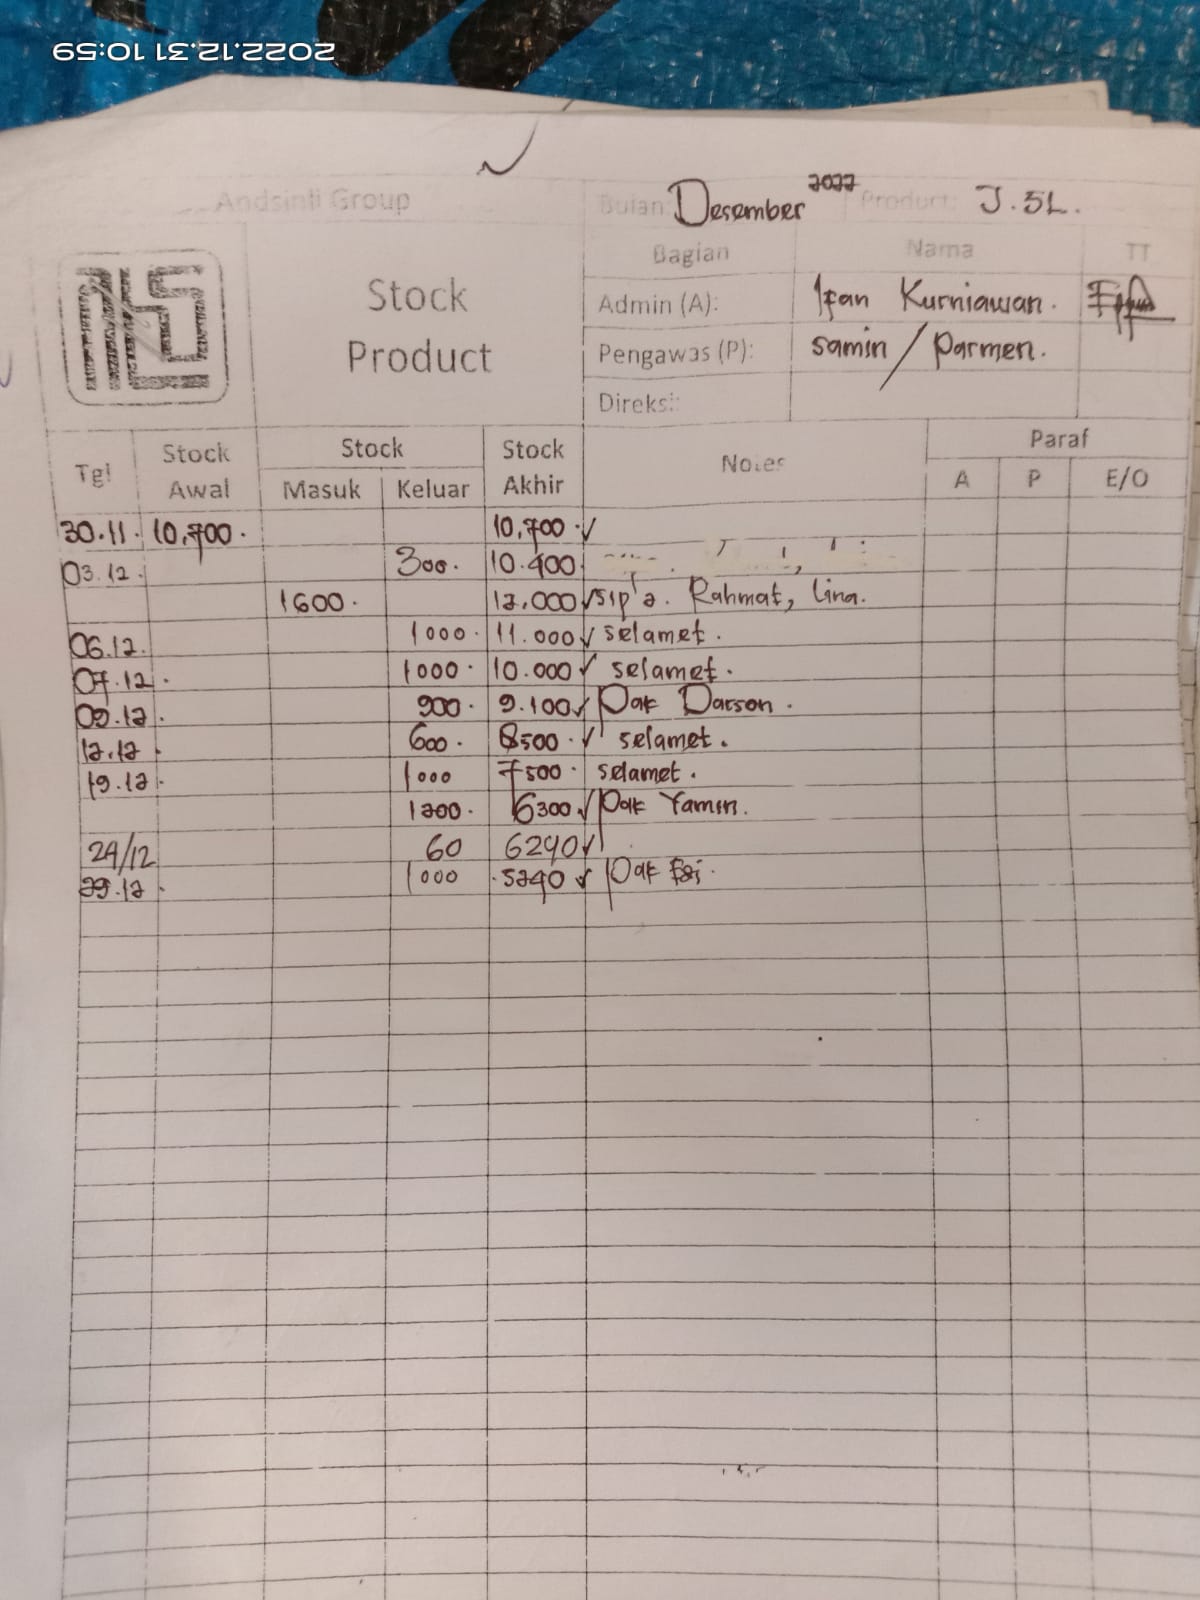 2022.12.31 10:59
Andsinti Group
Bulan: Desember 2022 Product: J.5L.
Stock Product
Bagian Nama TT
Admin (A): Ifan Kurniawan.
Pengawas (P): samin / Parmen.
Direksi:
Tgl Stock Awal Stock Masuk Keluar Stock Akhir Notes Paraf A P E/O
30.11. 10,700. 10,700.
03.12. 300. 10.400
1600. 12,000 sip'a. Rahmat, lina.
06.12. 1000. 11.000 selamet.
07.12. 1000. 10.000 selamet.
09.12. 900. 9.100 Pak Darson.
12.12. 600. 8500. selamet.
19.12. 1000 7500. selamet.
1200. 6300 Pak Yamin.
24/12 60 6240
29.12. 1000 5240 Pak